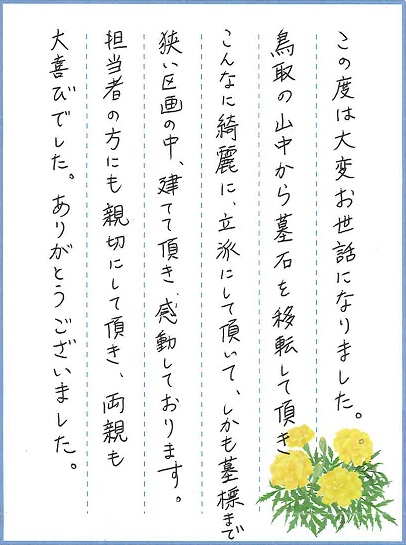 この度は大変お世話になりました。
鳥取の山中から墓石を移転して頂き
こんなに綺麗に、立派にして頂いて、しかも墓標まで
狭い区画の中、建てて頂き感動しております。
担当者の方にも親切にして頂き、両親も
大喜びでした。ありがとうございました。